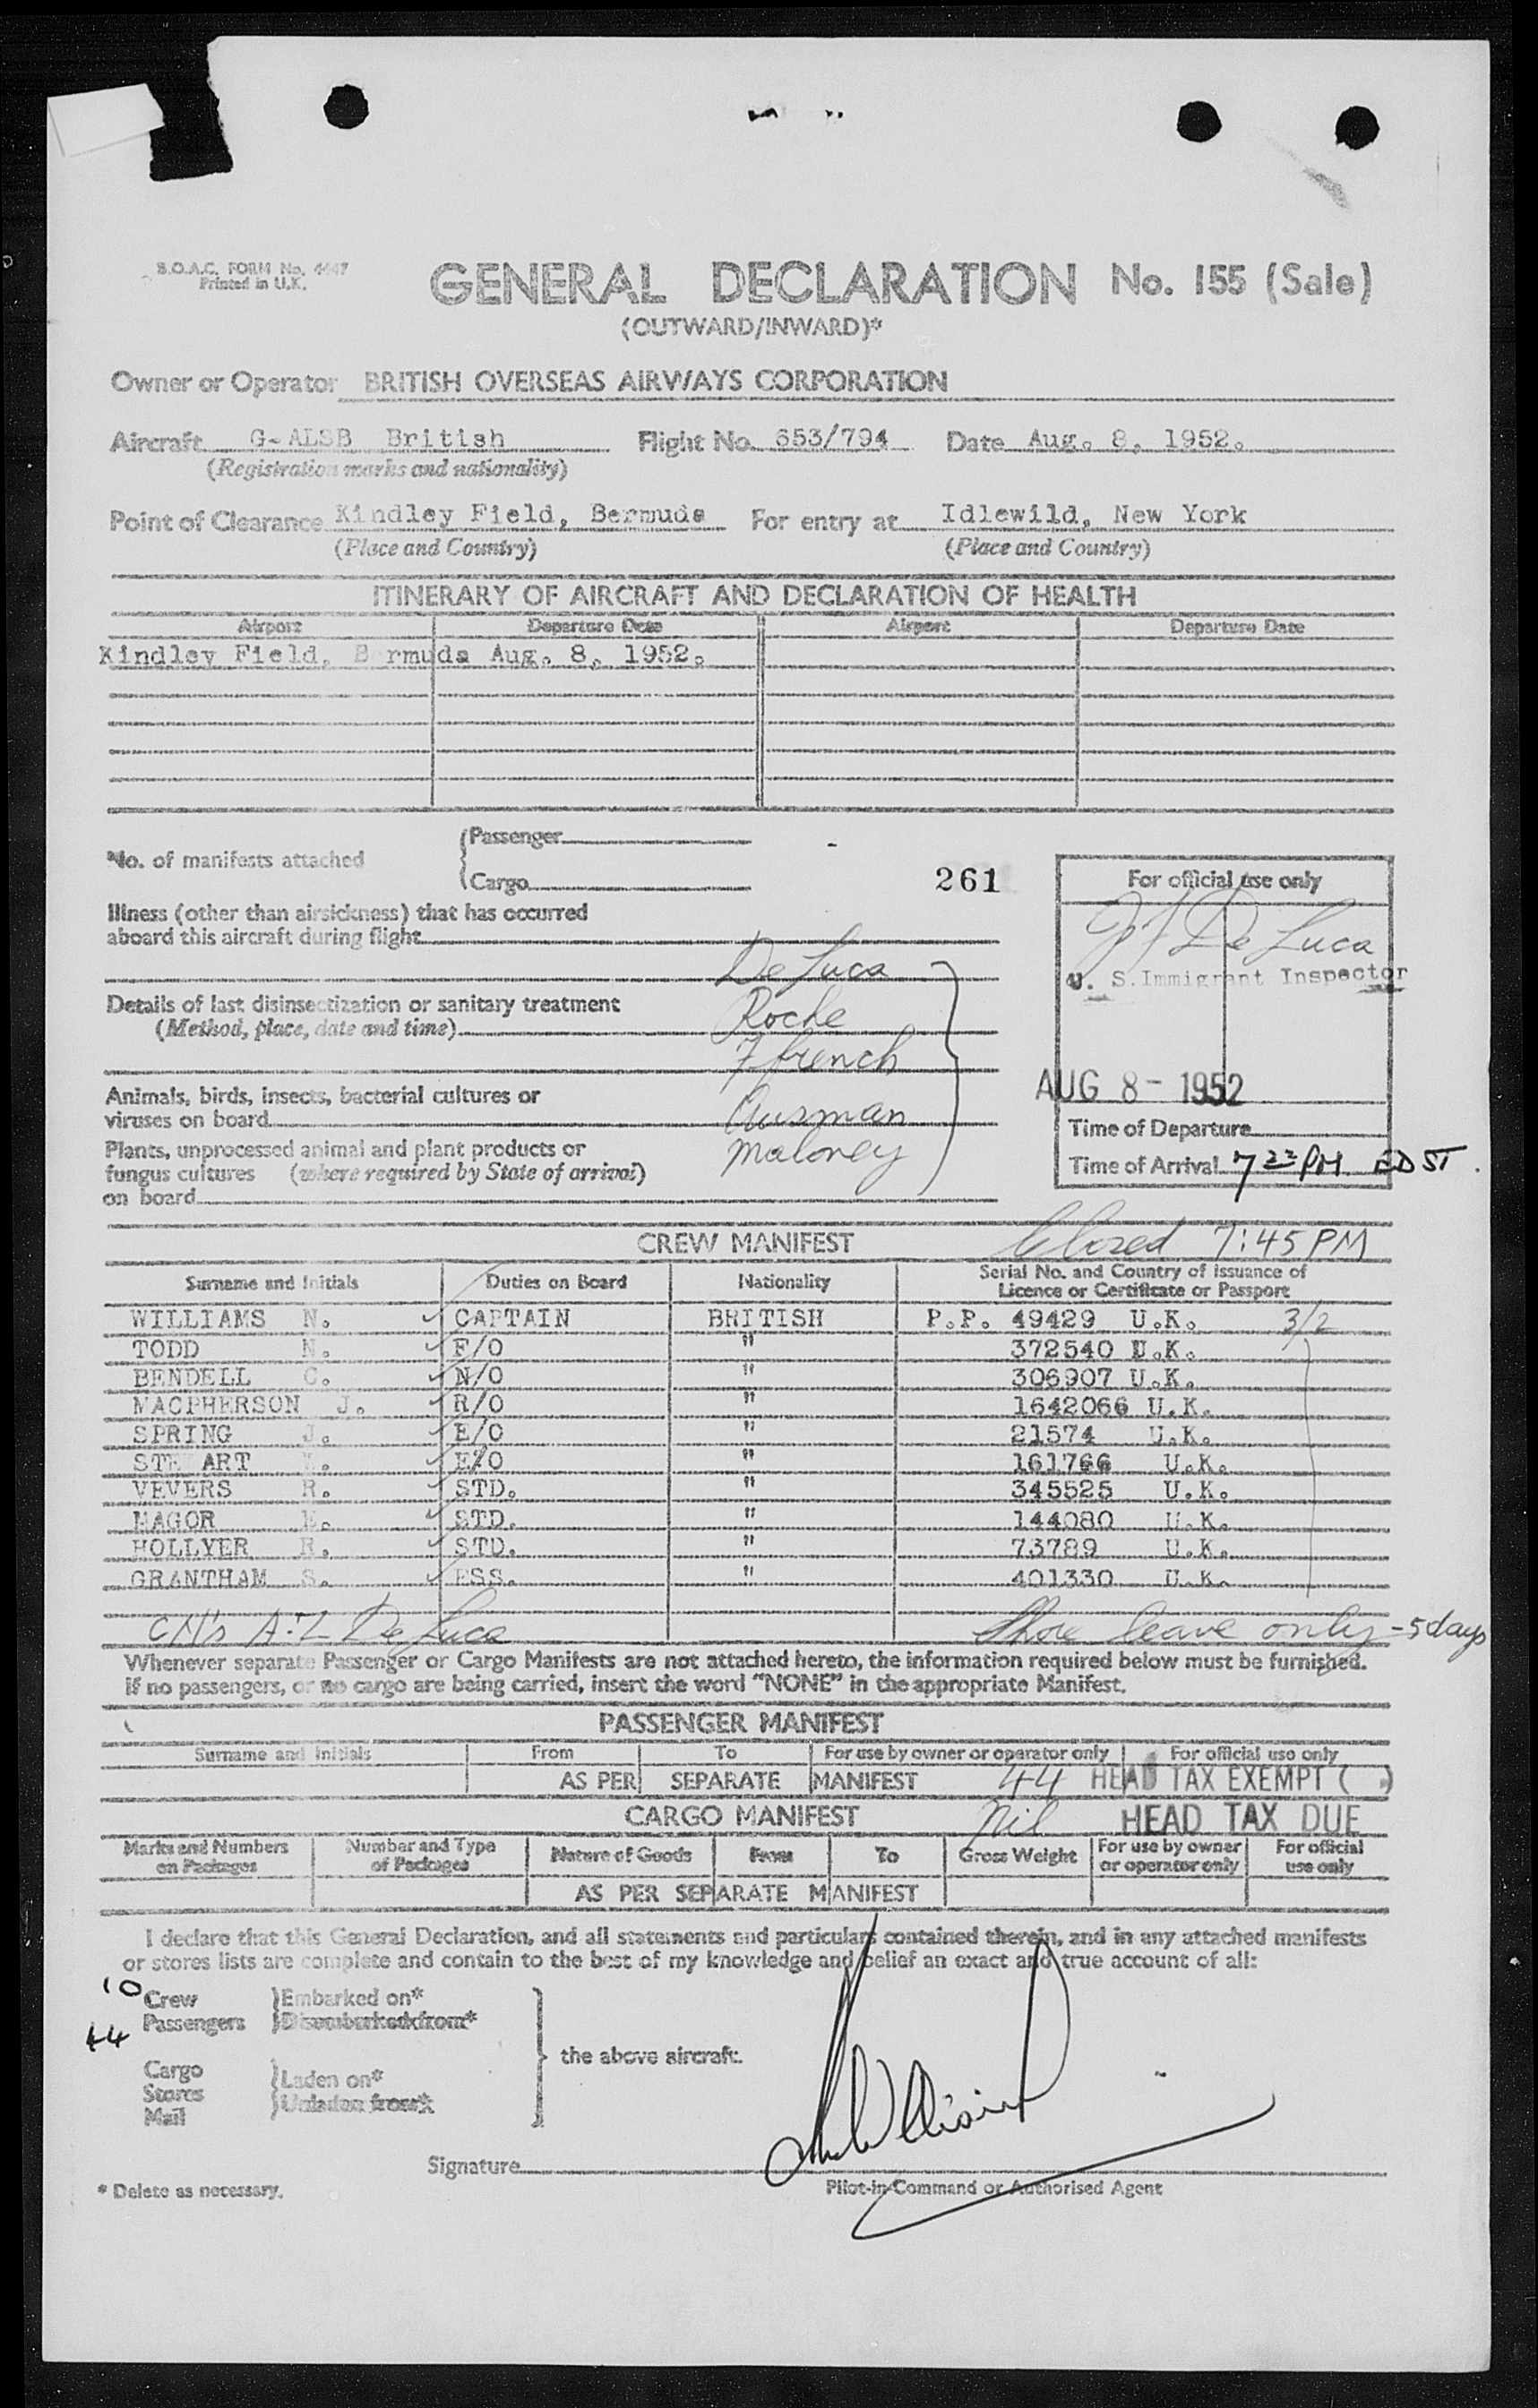 B.O.A.C. FORM No. 4447
Printed in U.K.
GENERAL DECLARATION No. 155 (Sale)
(OUTWARD/INWARD)*
Owner or Operator BRITISH OVERSEAS AIRWAYS CORPORATION
Aircraft G-ALSB British Flight No. 653/794 Date Aug. 8, 1952.
(Registration marks and nationality)
Point of Clearance Kindley Field, Bermuda For entry at Idlewild, New York
(Place and Country) (Place and Country)
ITINERARY OF AIRCRAFT AND DECLARATION OF HEALTH
Airport Departure Date Airport Departure Date
Kindley Field, B rmuda Aug. 8, 1952.
No. of manifests attached
Passenger
Cargo
261
For official use only
Illness (other than airsickness) that has occurred
aboard this aircraft during flight
De Luca
De Luca
U. S. Immigrant Inspector
Details of last disinsectization or sanitary treatment
(Method, place, date and time)
Roche
Ffrench
Animals, birds, insects, bacterial cultures or
viruses on board
Ausman
AUG 8 - 1952
Time of Departure
Plants, unprocessed animal and plant products or
fungus cultures (where required by State of arrival)
on board
Maloney
Time of Arrival 7 22 PM EDST.
CREW MANIFEST
Closed 7:45 PM
Surname and Initials Duties on Board Nationality Serial No. and Country of Issuance of
Licence or Certificate or Passport
WILLIAMS N. CAPTAIN BRITISH P.P. 49429 U.K. 3/2
TODD N. F/O " 372540 U.K.
BENDELL C. N/O " 306907 U.K.
MACPHERSON J. R/O " 1642066 U.K.
SPRING J. E/O " 21574 U.K.
STE ART E/O " 161766 U.K.
VEVERS R. STD. " 345525 U.K.
MAGOR E. STD. " 144080 U.K.
HOLLYER R. STD. " 73789 U.K.
GRANTHAM S. ESS. " 401330 U.K.
De Luca Shore leave only - 5 days
Whenever separate Passenger or Cargo Manifests are not attached hereto, the information required below must be furnished.
If no passengers, or no cargo are being carried, insert the word "NONE" in the appropriate Manifest.
PASSENGER MANIFEST
Surname and Initials From To For use by owner or operator only For official use only
AS PER SEPARATE MANIFEST 44 HEAD TAX EXEMPT ( )
CARGO MANIFEST Nil HEAD TAX DUE
Marks and Numbers
on Packages
Number and Type
of Packages
Nature of Goods From To Gross Weight
For use by owner
or operator only
For official
use only
AS PER SEPARATE MANIFEST
I declare that this General Declaration, and all statements and particulars contained therein, and in any attached manifests
or stores lists are complete and contain to the best of my knowledge and belief an exact and true account of all:
10 Crew Embarked on*
44 Passengers Disembarked from*
the above aircraft.
Cargo
Stores
Mail
Laden on*
Unladen from*
Signature N Williams
* Delete as necessary.
Pilot-in-Command or Authorised Agent